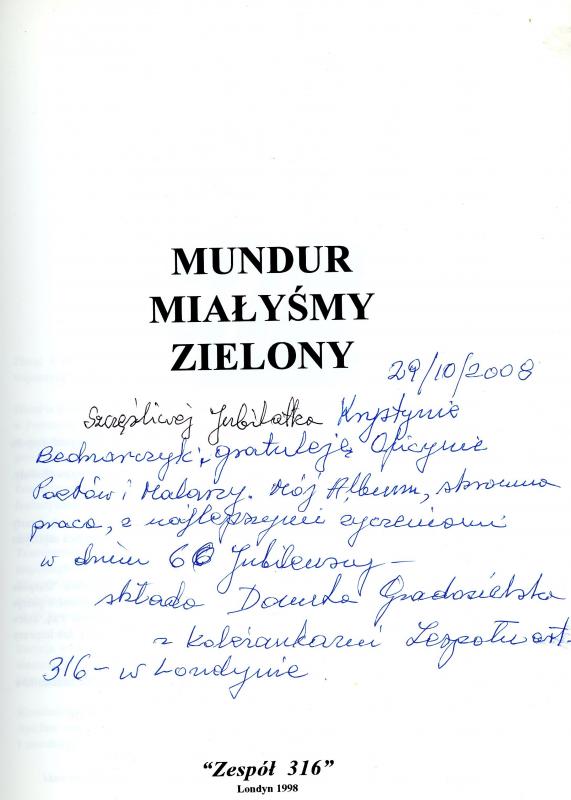 MUNDUR
MIAŁYŚMY
ZIELONY
29/10/2008
Szczęśliwej Jubilatka Krystynie
Bednarczyk, gratuleję Oficynie
Poetów i Malarzy. Mój Album, skromna
praca, z najlepszymi życzeniami
w dniu 60 Jubileuszu –
składa Danuta Gradosielska
z koleżankami Zespołu art.
316 – w Londynie.
"Zespół 316"
Londyn 1998